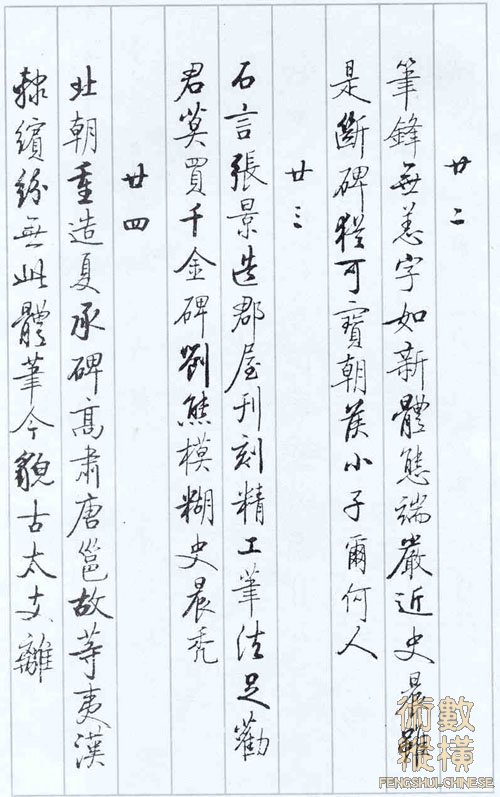 廿二
筆鋒無恙字如新體態端嚴近史晨雖
是斷碑猶可寶朝侯小子爾何人
廿三
石言張景造郡屋刊刻精工筆法足勸
君莫買千金碑劉熊模糊史晨禿
廿四
北朝重造夏承碑高肅唐邕故等夷漢
隸繽紛無此體筆今貌古太支離
術數縱橫
FENGSHUI-CHINESE